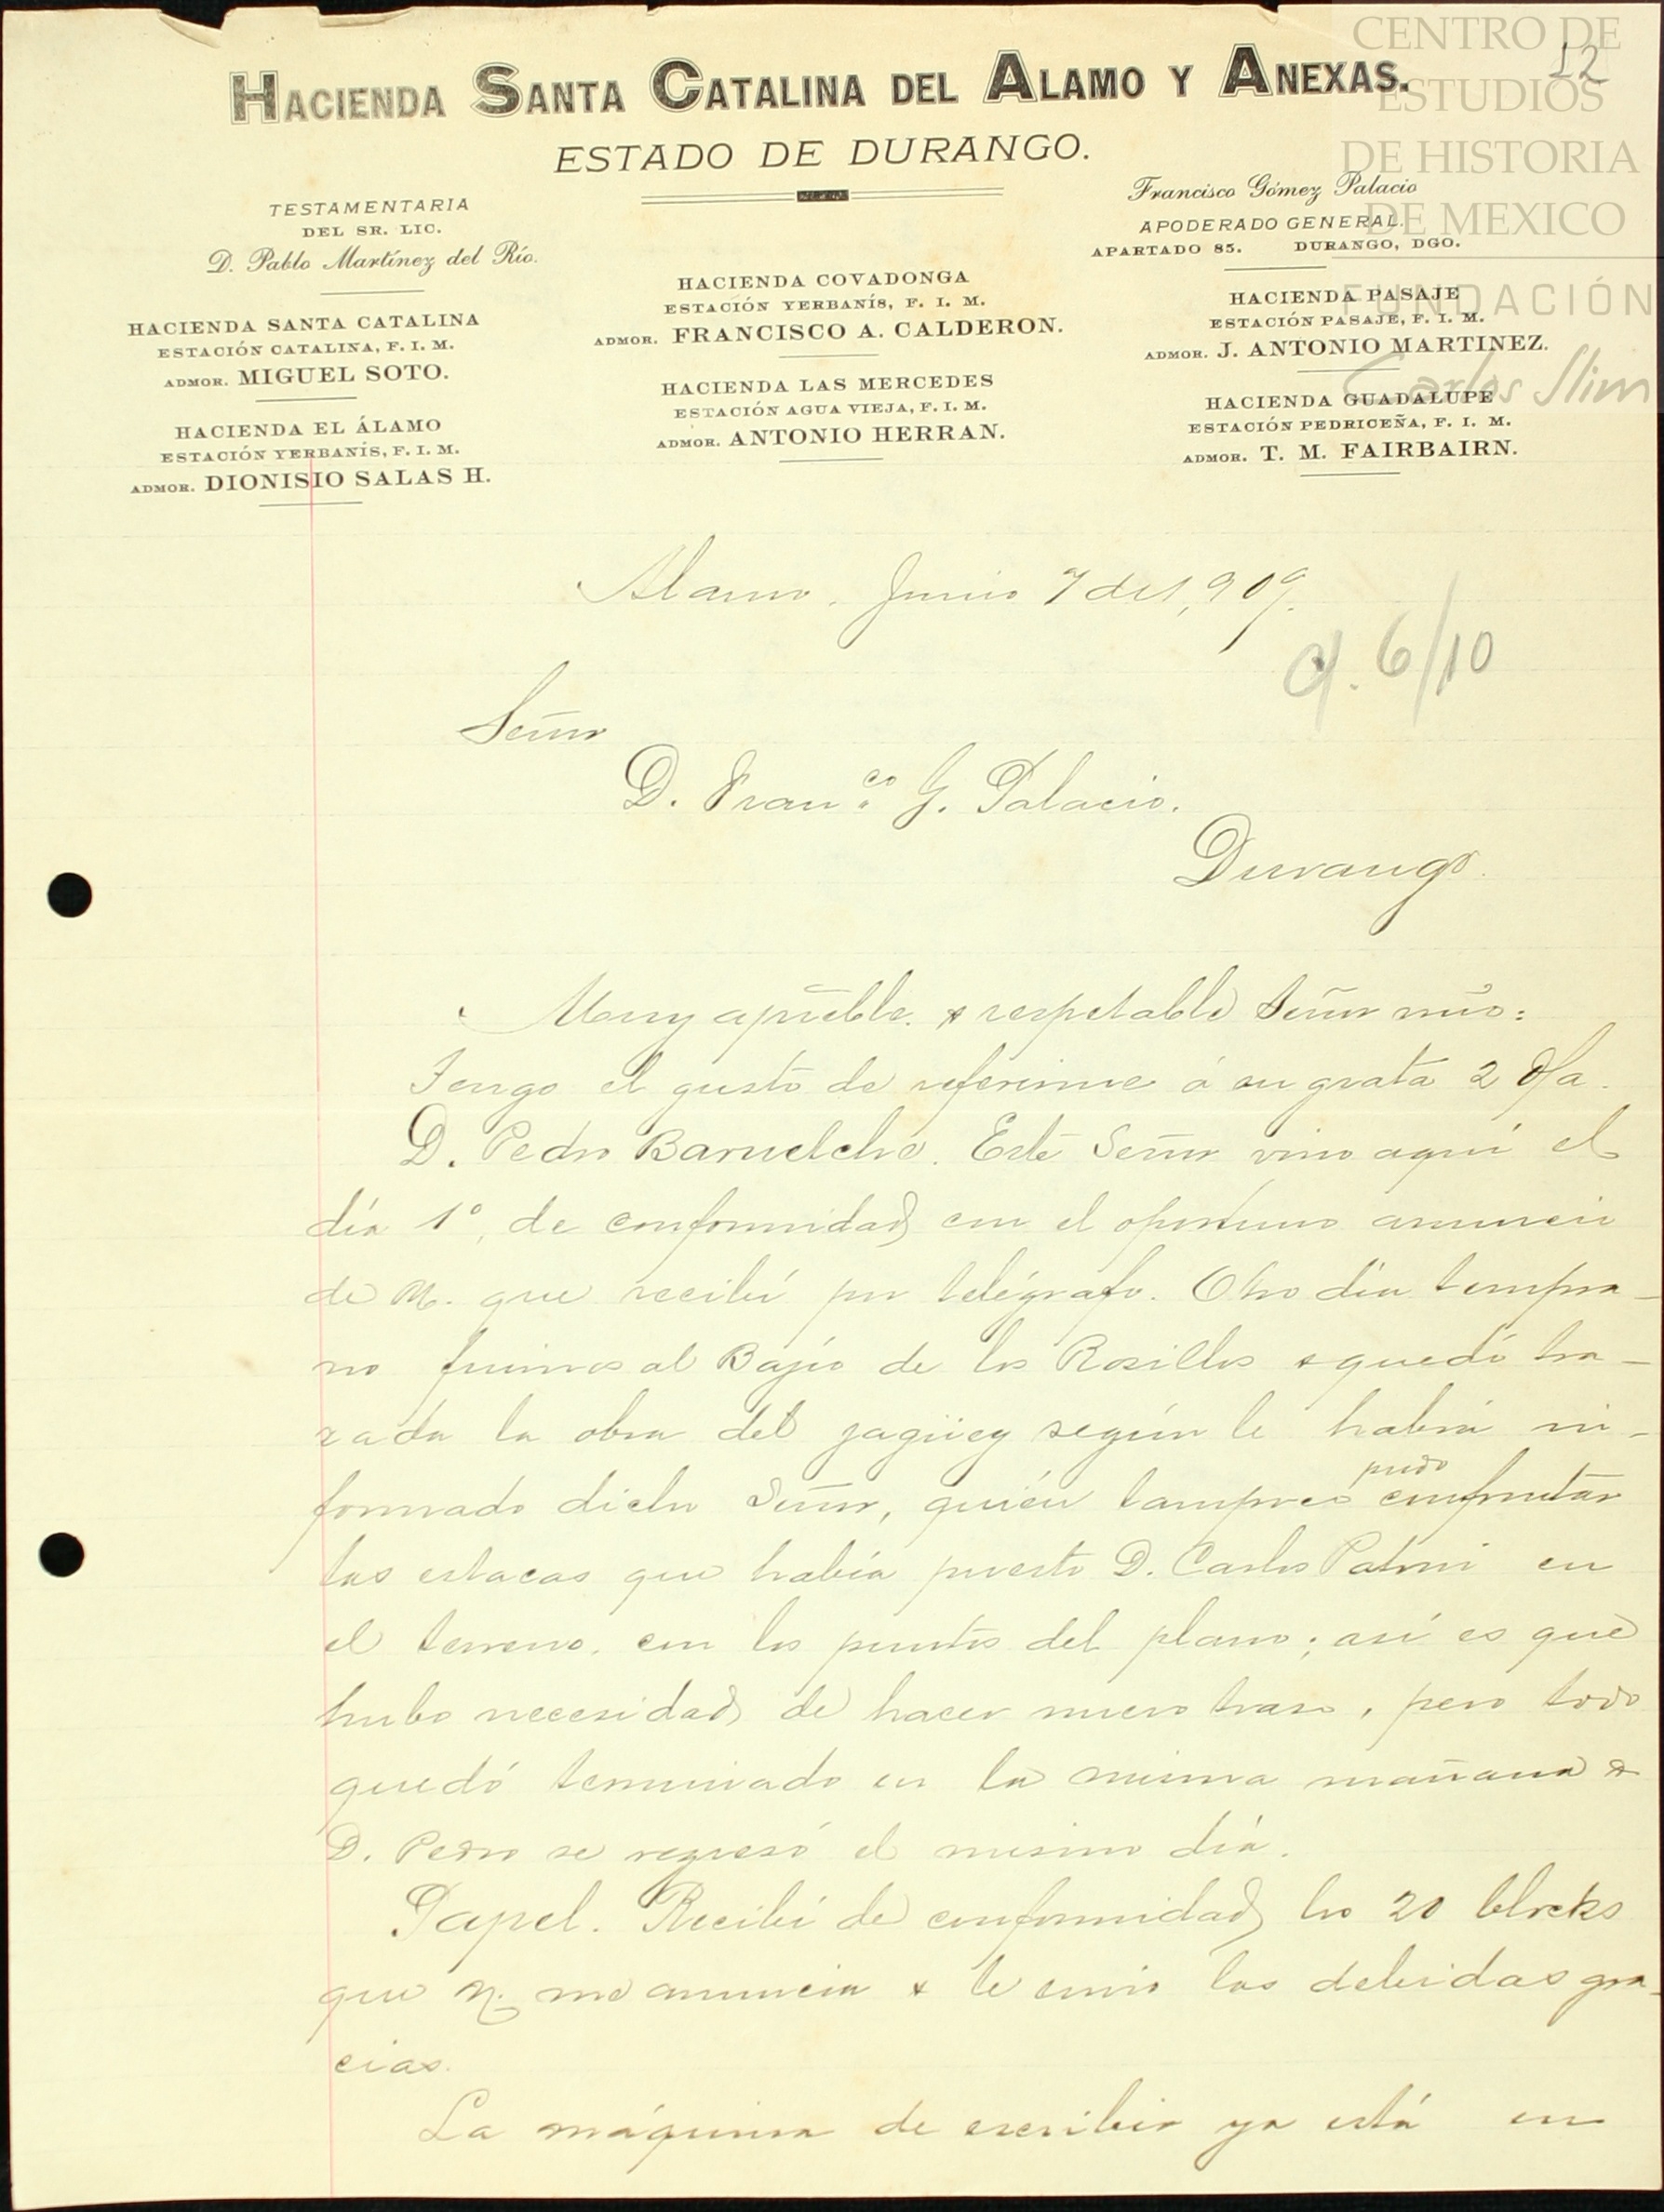 CENTRO DE
ESTUDIOS
DE HISTORIA
DE MEXICO
FUNDACIÓN
Carlos Slim
12
HACIENDA SANTA CATALINA DEL ALAMO Y ANEXAS.
ESTADO DE DURANGO.
TESTAMENTARIA
DEL SR. LIC.
D. Pablo Martínez del Río.
HACIENDA SANTA CATALINA
ESTACIÓN CATALINA, F. I. M.
ADMOR. MIGUEL SOTO.
HACIENDA EL ÁLAMO
ESTACIÓN YERBANÍS, F. I. M.
ADMOR. DIONISIO SALAS H.
HACIENDA COVADONGA
ESTACIÓN YERBANÍS, F. I. M.
ADMOR. FRANCISCO A. CALDERON.
HACIENDA LAS MERCEDES
ESTACIÓN AGUA VIEJA, F. I. M.
ADMOR. ANTONIO HERRAN.
Francisco Gómez Palacio
APODERADO GENERAL.
APARTADO 85. DURANGO, DGO.
HACIENDA PASAJE
ESTACIÓN PASAJE, F. I. M.
ADMOR. J. ANTONIO MARTINEZ.
HACIENDA GUADALUPE
ESTACIÓN PEDRICEÑA, F. I. M.
ADMOR. T. M. FAIRBAIRN.
Alamo, Junio 7 de 1,909.
6/10
Señor
D. Fran.co G. Palacio.
Durango.
Muy apreble. & respetable Señor mío:
Tengo el gusto de referirme á su grata 2 
D. Pedro Este Señor vino aquí el
día 1º, de conformidad con el oportuno anuncio
de U. que recibí por telégrafo. Otro día tempra-
no fuimos al Bajío de los Rosillos & quedó tra-
zada la obra del jagüey según le habrá in-
formado dicho Señor, quién tampoco pudo confrontar
las estacas que había puesto D. Carlos Patoni en
el terreno, con los puntos del plano; así es que
hubo necesidad de hacer nuevo trazo, pero todo
quedó terminado en la misma mañana &
D. Pedro se regresó el mismo día.
Papel. Recibí de conformidad los 20 blocks
que U. me anuncia & le envío las debidas gra-
cias.
La máquina de escribir ya está en